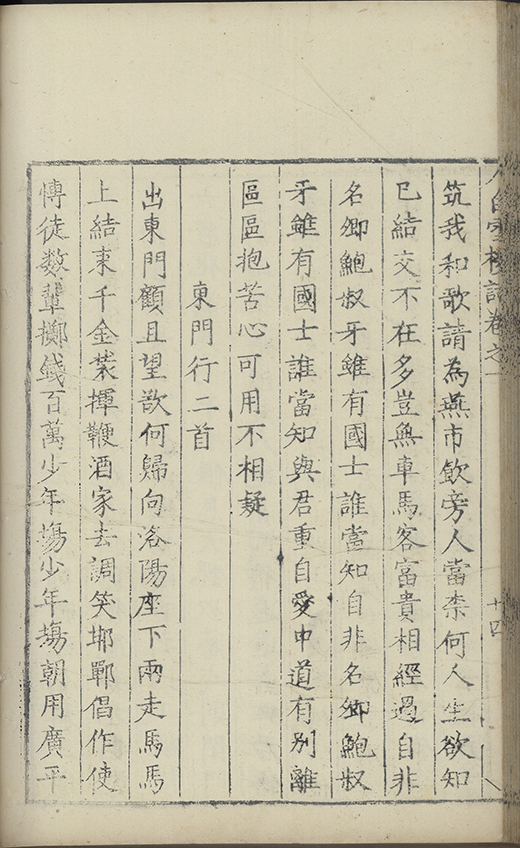 白雪樓詩卷之一
十四
筑我和歌請為燕市飲旁人當柰何人生欲知
已結交不在多豈無車馬客富貴相經過自非
名卿鮑叔牙雖有國士誰當知自非名卿鮑叔
牙雖有國士誰當知與君重自愛中道有別離
區區抱苦心可用不相疑
東門行二首
出東門顧且望欲何歸向洛陽座下兩走馬馬
上結束千金裘揮鞭酒家去調笑邯鄲倡作使
博徒数輩擲錢百萬少年塲少年塲朝用廣平